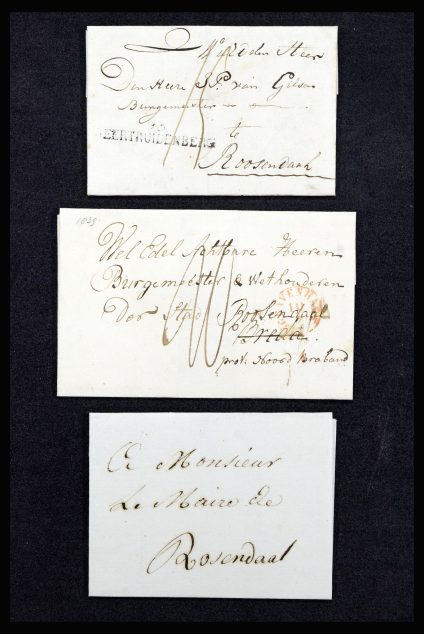 Wel Ed den Heer
Den Heere J.P. van Gilse
Burgemeester
te
Roosendaal
GEERTRUIDENBERG
1839
Wel Edel Achtbare Heeren
Burgemeester & Wethouderen
Der Stad Roosendaal
Breda
prov: Noord Braband
A Monsieur
Le Maire de
Rosendaal